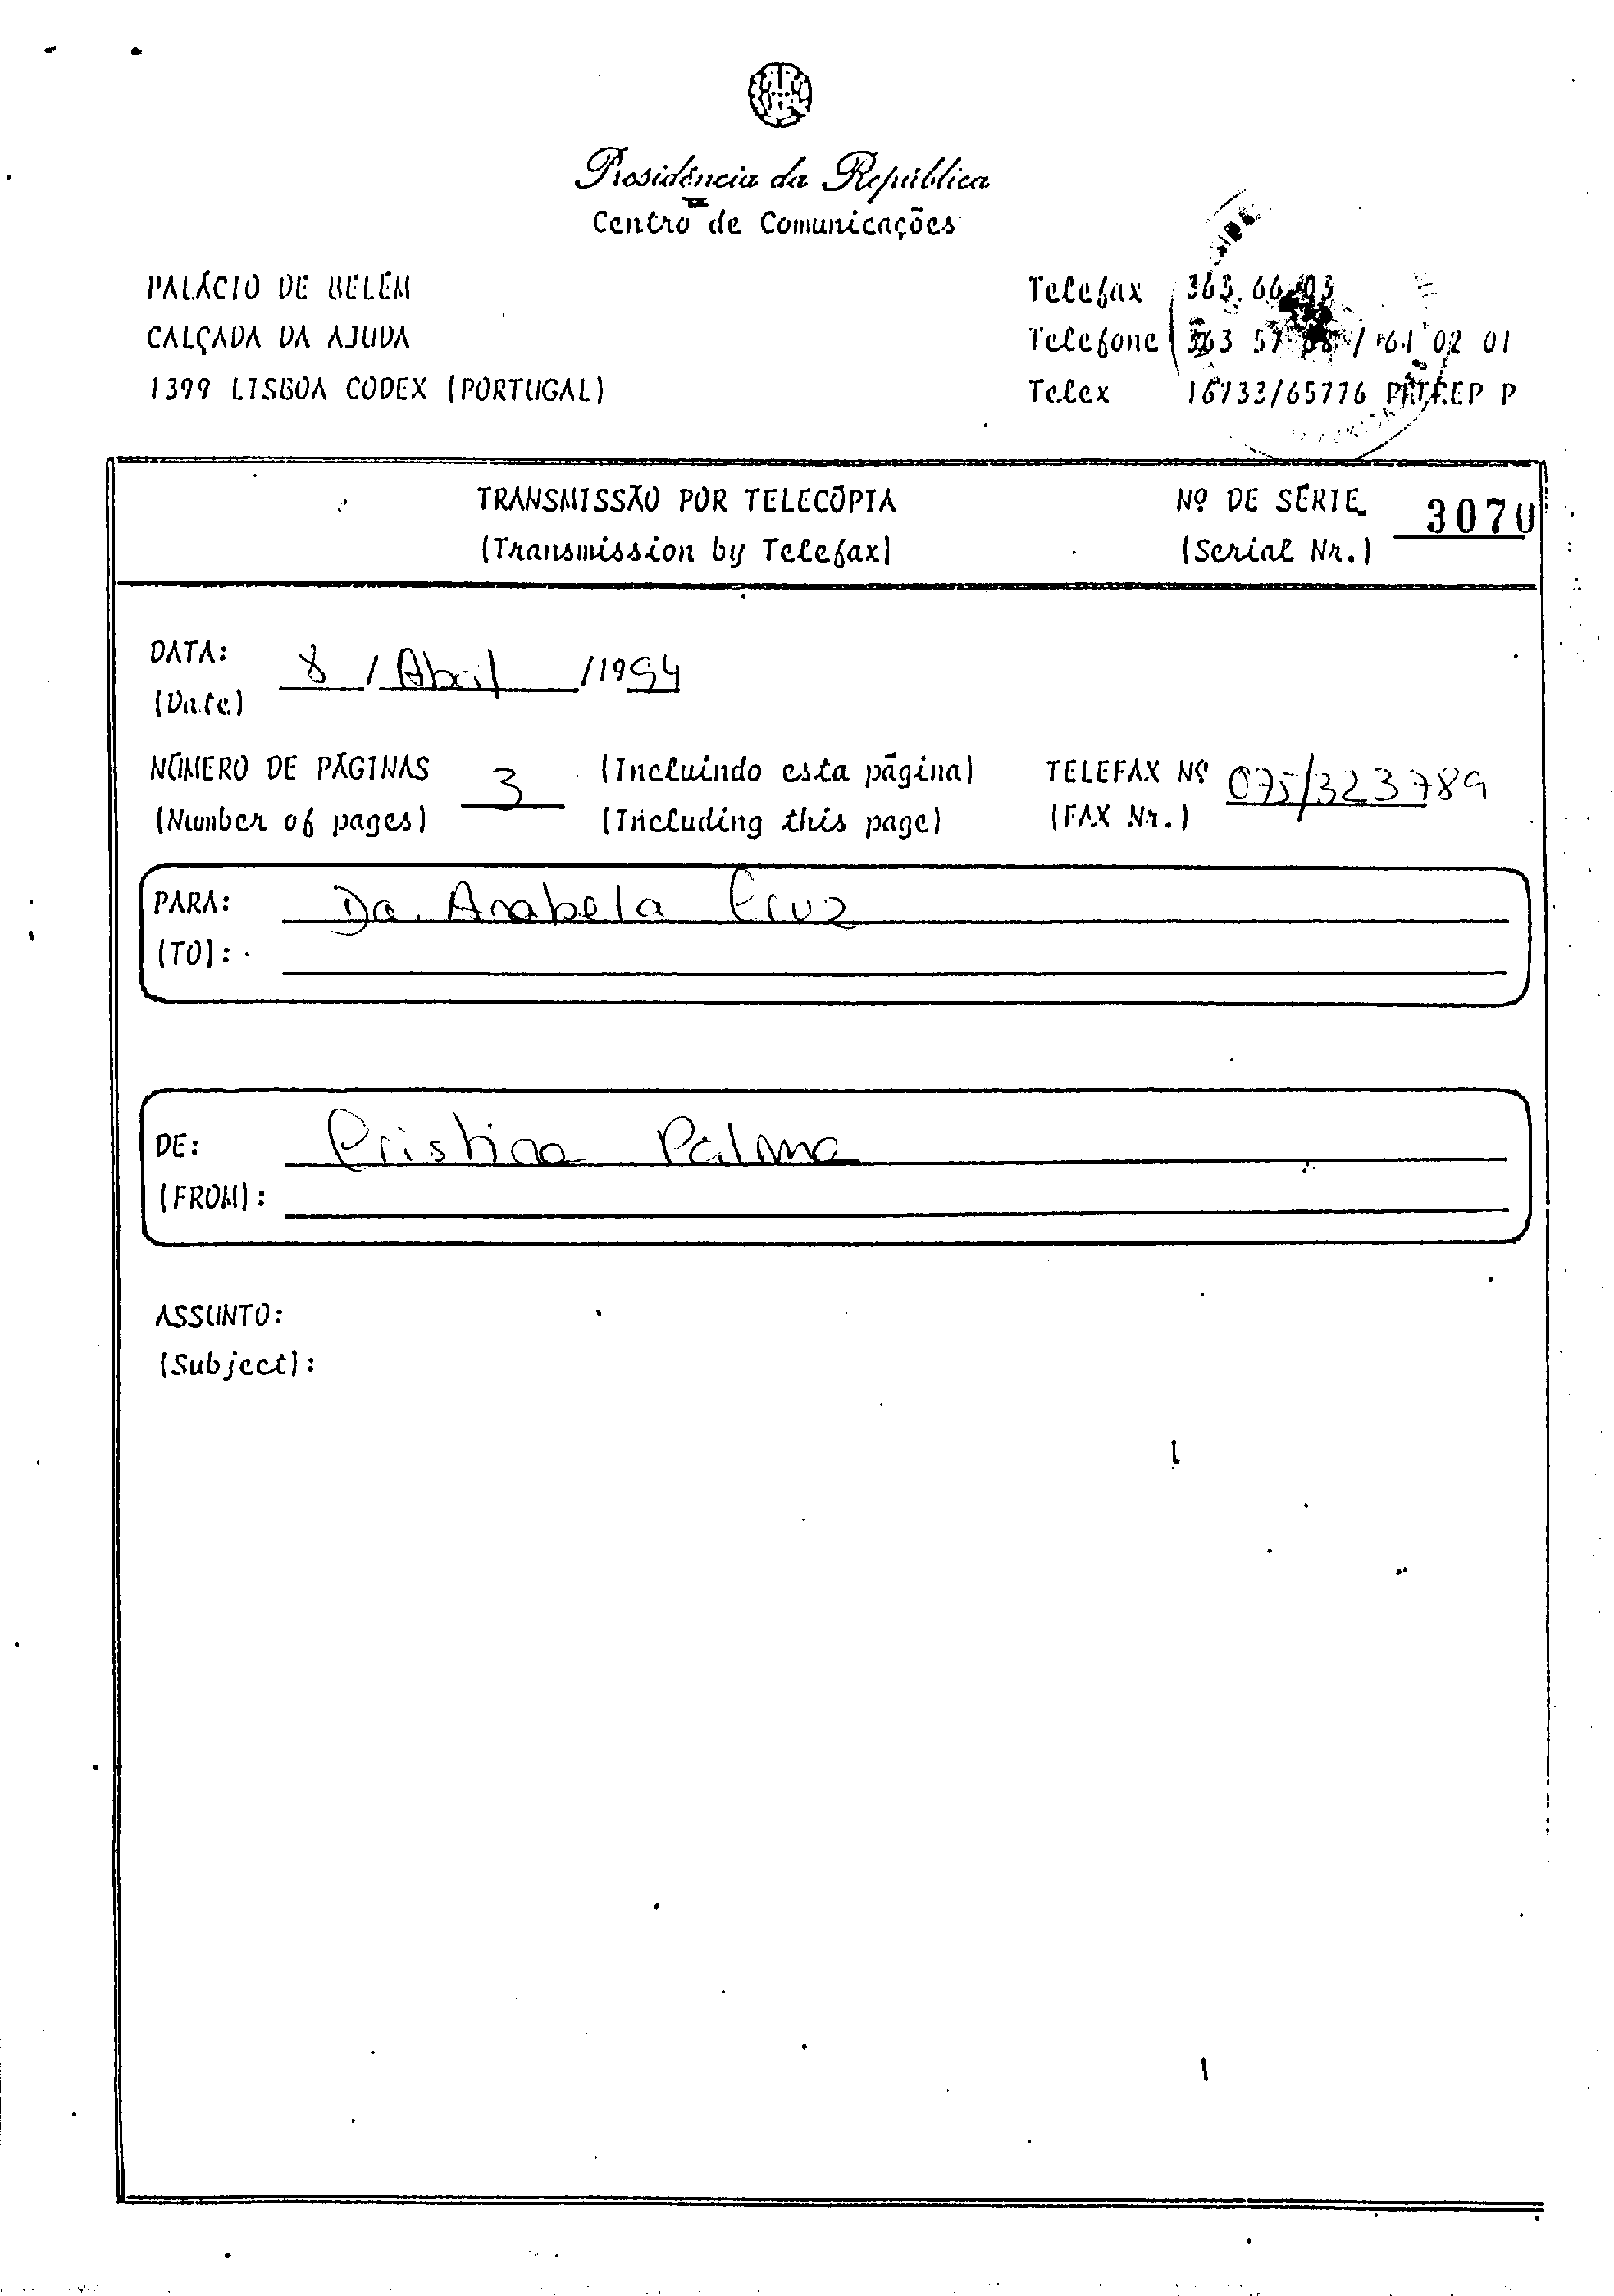 Presidência da República
Centro de Comunicações
PALÁCIO DE BELÉM
CALÇADA DA AJUDA
1399 LISBOA CODEX (PORTUGAL)
Telefax 363 66 03
Telefone 363 57 / 02 01
Telex 16733/65776 P
TRANSMISSÃO POR TELECÓPIA
(Transmission by Telefax)
Nº DE SÉRIE 3070
(Serial Nr.)
DATA: 8 / Abril / 1994
(Date)
NÚMERO DE PÁGINAS 3 (Incluindo esta página)
(Number of pages) (Including this page)
TELEFAX Nº 075/323789
(FAX Nr.)
PARA: Da. Anabela Cruz
(TO):
DE: Cristina Palma
(FROM):
ASSUNTO:
(Subject):